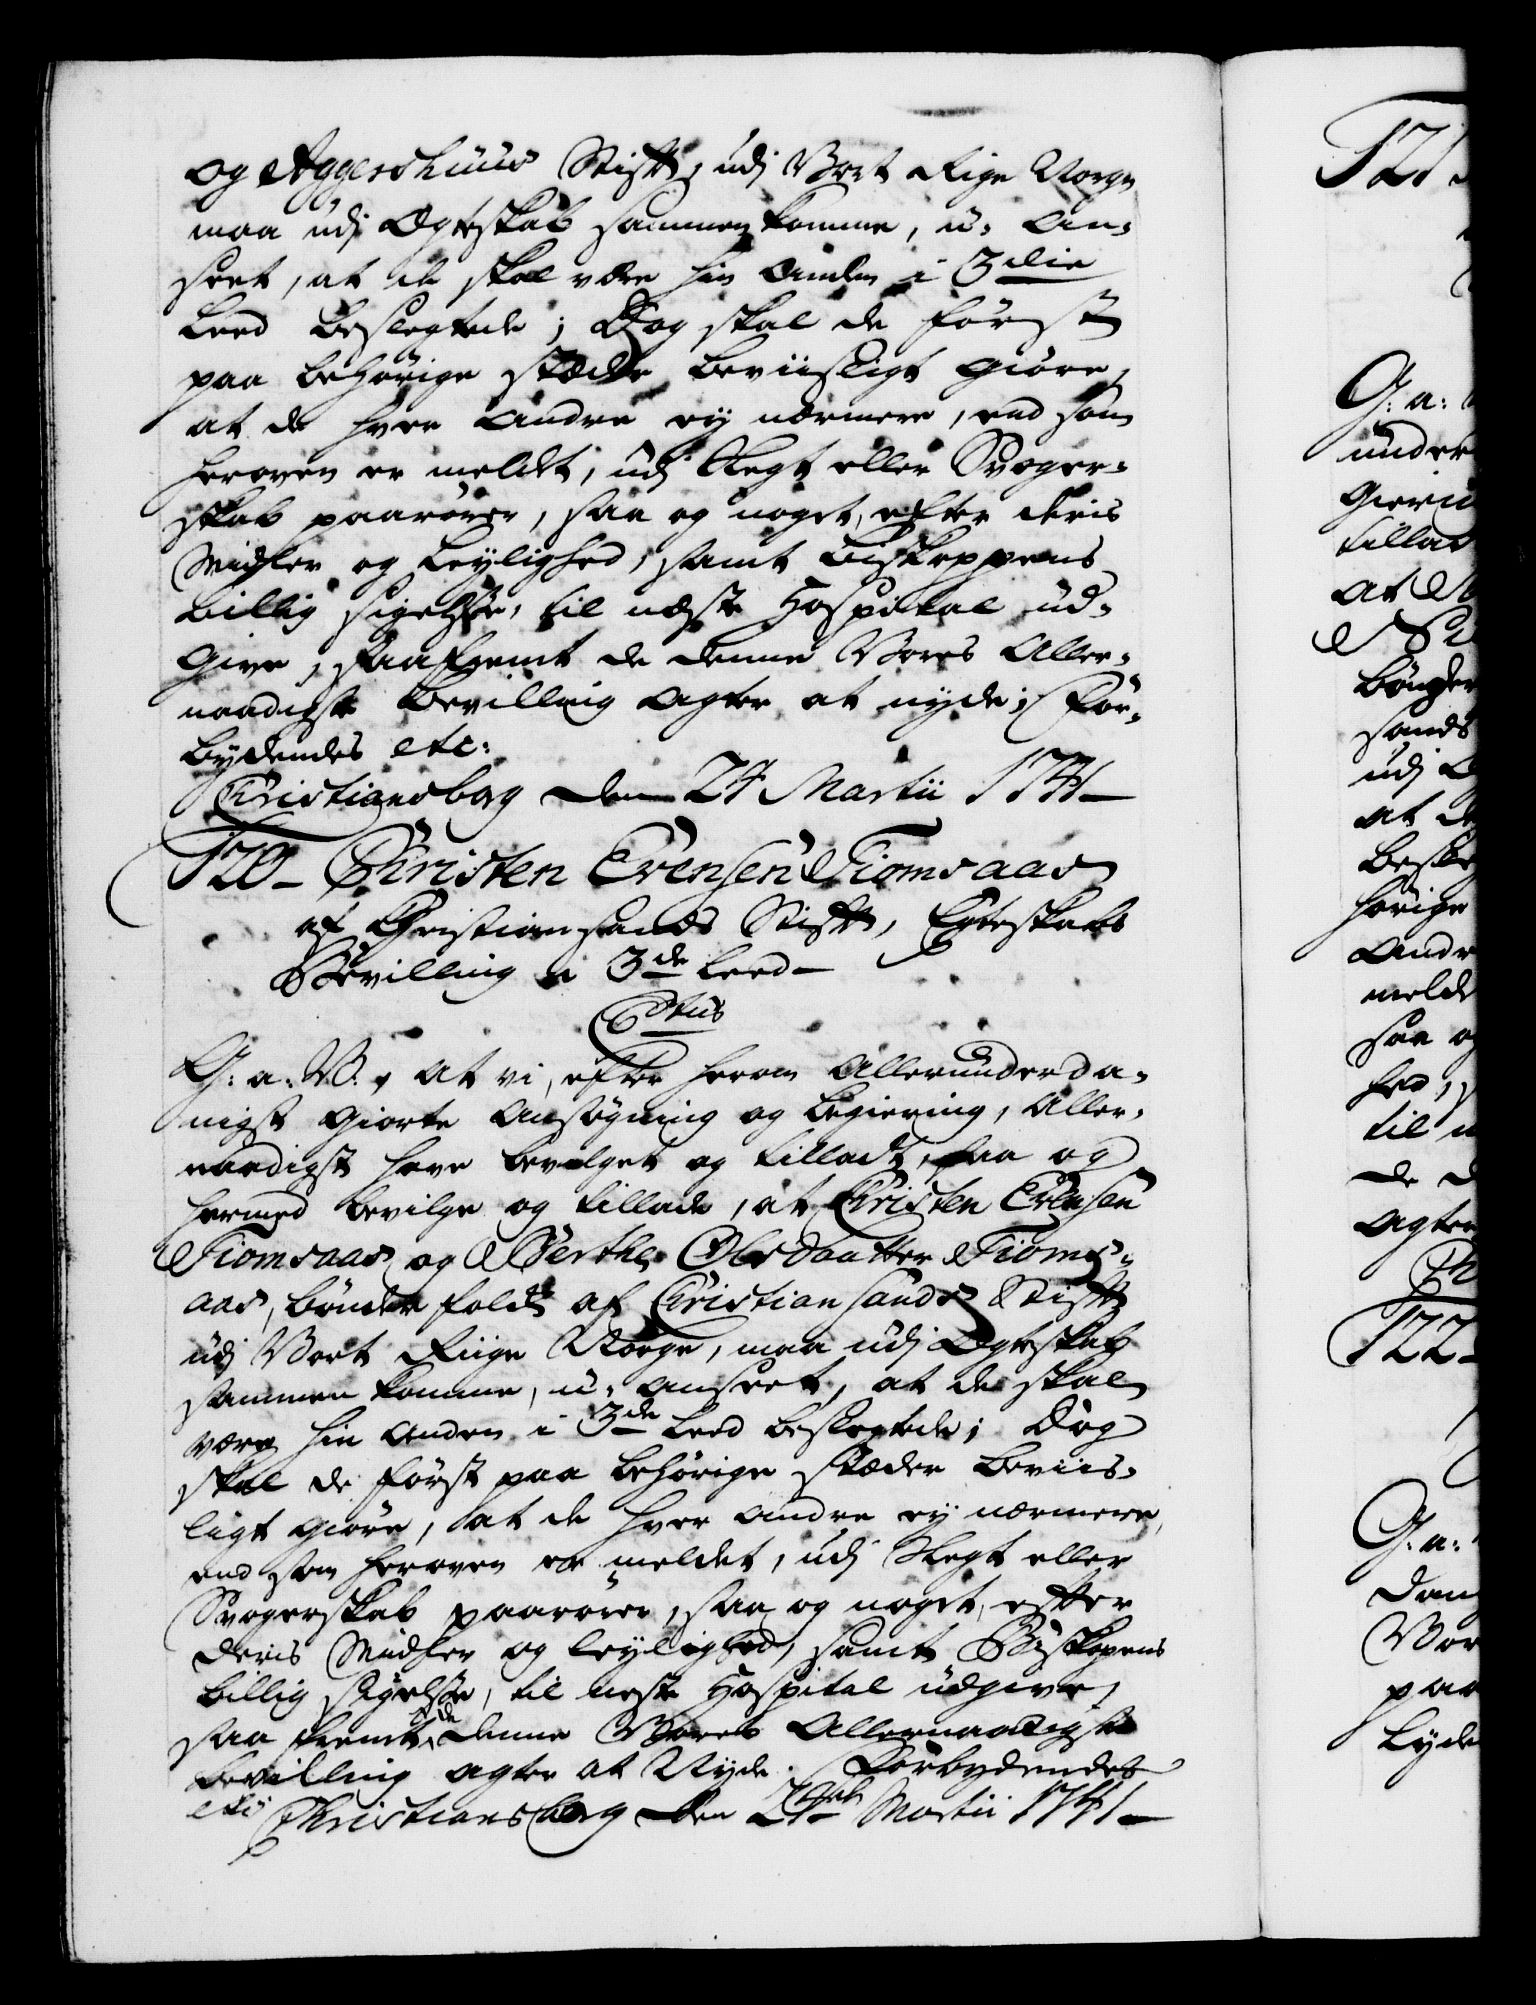 og Aggershuus Stift, udj Vort Rige Norge
maa udj Ægteskab sammen komme, u- an-
seet, at de skal være hin anden i 3die
Leed beslegtede; Dog skal de først
paa behörige stæder beviisligt giöre,
at de hver andre ey nærmere, end som
heroven er meldt, udj Slegt eller Svoger-
skab paarörer, saa og noget, efter deris
Midler og Leylighed, samt Biskoppens
billig sigelsse, til næste Hospital ud-
give, saafremt de denne Vores Aller-
naadigste Bevilling agter at nyde; For-
bydendes etc:
Christiansborg den 24 Martii 1741
120 Christen Evensen Fiomsaas
af Christiansands Stift, Egteskabs
Bevilling i 3de Leed
C6tus
G: a: V:, at vi, efter herom Allerunderda-
nigst giorte Ansögning og begiering, Aller-
naadigst have bevilget og tilladt, saa og
hermed bevilge og tillade, at Christen Evensen
Fiomsaas og Berthe Olsdaatter Fioms-
aas, bönder folck af Christiansands Stift
udj Vort Riige Norge, maa udj Ægteskab
sammen komme, u- anseet, at de skal
være hin anden i 3de Leed beslegtede; Dog
skal de först paa behörige stæder beviis-
ligt giöre, at de hver andre ey nærmere,
end som heroven er meldet, udj Slegt eller
Svogerskab paarörer, saa og noget, efter
deris Midler og leylighed, samt Biskopens
billig sigelsse, til neste Hospital udgive,
saa fremt de denne Vores Allernaadigste
bevilling agter at Nyde. Forbydendes
etc: Christiansborg den 24de Martii 1741
121
G: a:
under
tillad
at
bönder
sands
udj
at de
besle
hörige
andre
meld
saa og
hed, s
til n
de d
agter
122
G: a:
dan
Vor
paa
Lyde